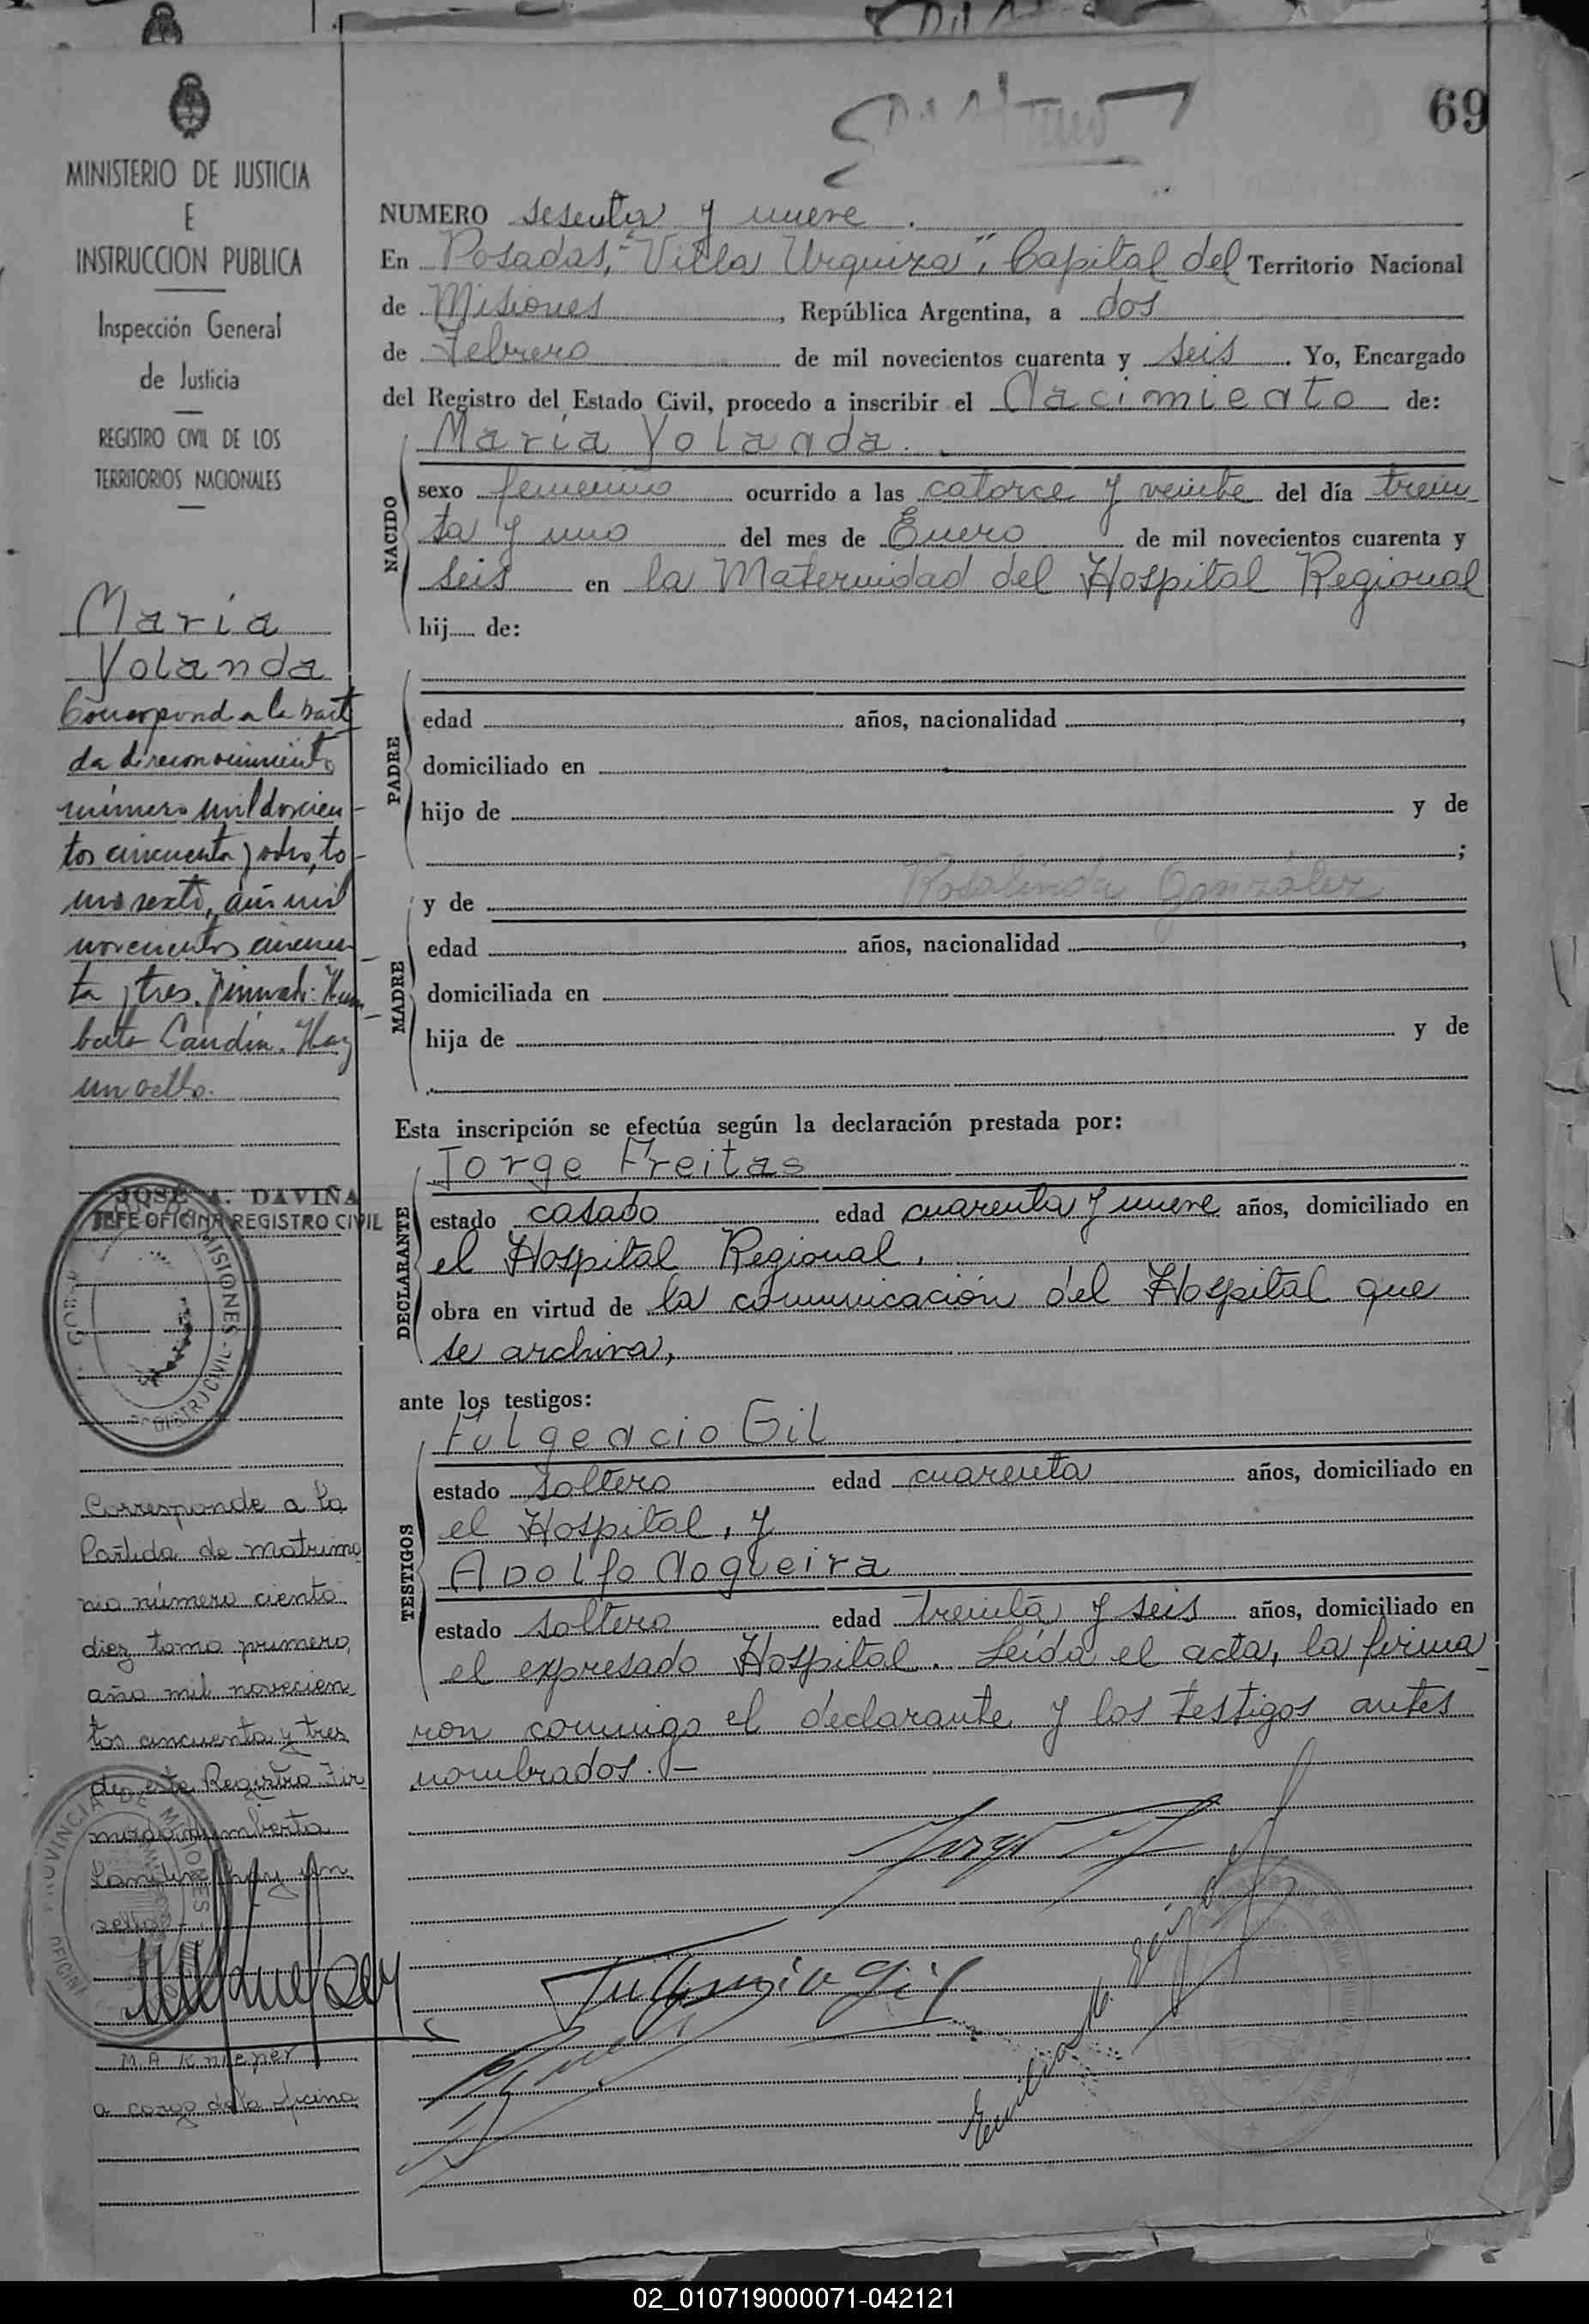 69
MINISTERIO DE JUSTICIA
E
INSTRUCCION PUBLICA
Inspección General
de Justicia
REGISTRO CIVIL DE LOS
TERRITORIOS NACIONALES
María
Yolanda
Correspond a la parti
da de reconocimiento
número mil doscien
tos cincuenta y ocho, to-
mo sexto, año mil
novecientos cincuen-
ta y tres. Firmado: Hum-
berto Candia. Hay
un sello.
JOSÉ A. DAVIÑA
JEFE OFICINA REGISTRO CIVIL
MISIONES
REGISTRO CIVIL
Corresponde a la
Partida de matrimo
nio número ciento
diez tomo primero,
año mil novecien
tos cincuenta y tres
de este Registro. Fir
mado Humberto
hay un
sello.-
PROVINCIA DE MISIONES
OFICINA
M.A. Knieper
a cargo de la oficina
NUMERO sesenta y nueve.
En Posadas, "Villa Urquiza", Capital del Territorio Nacional
de Misiones, República Argentina, a dos
de Febrero de mil novecientos cuarenta y seis. Yo, Encargado
del Registro del Estado Civil, procedo a inscribir el Nacimiento de:
María Yolanda.
NACIDO
sexo femenino ocurrido a las catorce y veinte del día trein-
ta y uno del mes de Enero de mil novecientos cuarenta y
seis en la Maternidad del Hospital Regional
hij de:
PADRE
edad años, nacionalidad ,
domiciliado en
hijo de y de
;
MADRE
y de Rosalinda González
edad años, nacionalidad ,
domiciliada en
hija de y de
Esta inscripción se efectúa según la declaración prestada por:
DECLARANTE
Jorge Freitas
estado casado edad cuarenta y nueve años, domiciliado en
el Hospital Regional.
obra en virtud de la comunicación del Hospital que
se archiva,
ante los testigos:
TESTIGOS
Fulgencio Gil
estado soltero edad cuarenta años, domiciliado en
el Hospital, y
Adolfo Nogueira
estado soltero edad treinta y seis años, domiciliado en
el expresado Hospital. Leída el acta, la firma-
ron conmigo el declarante y los testigos antes
nombrados.-
Fulgencio Gil
02_010719000071-042121